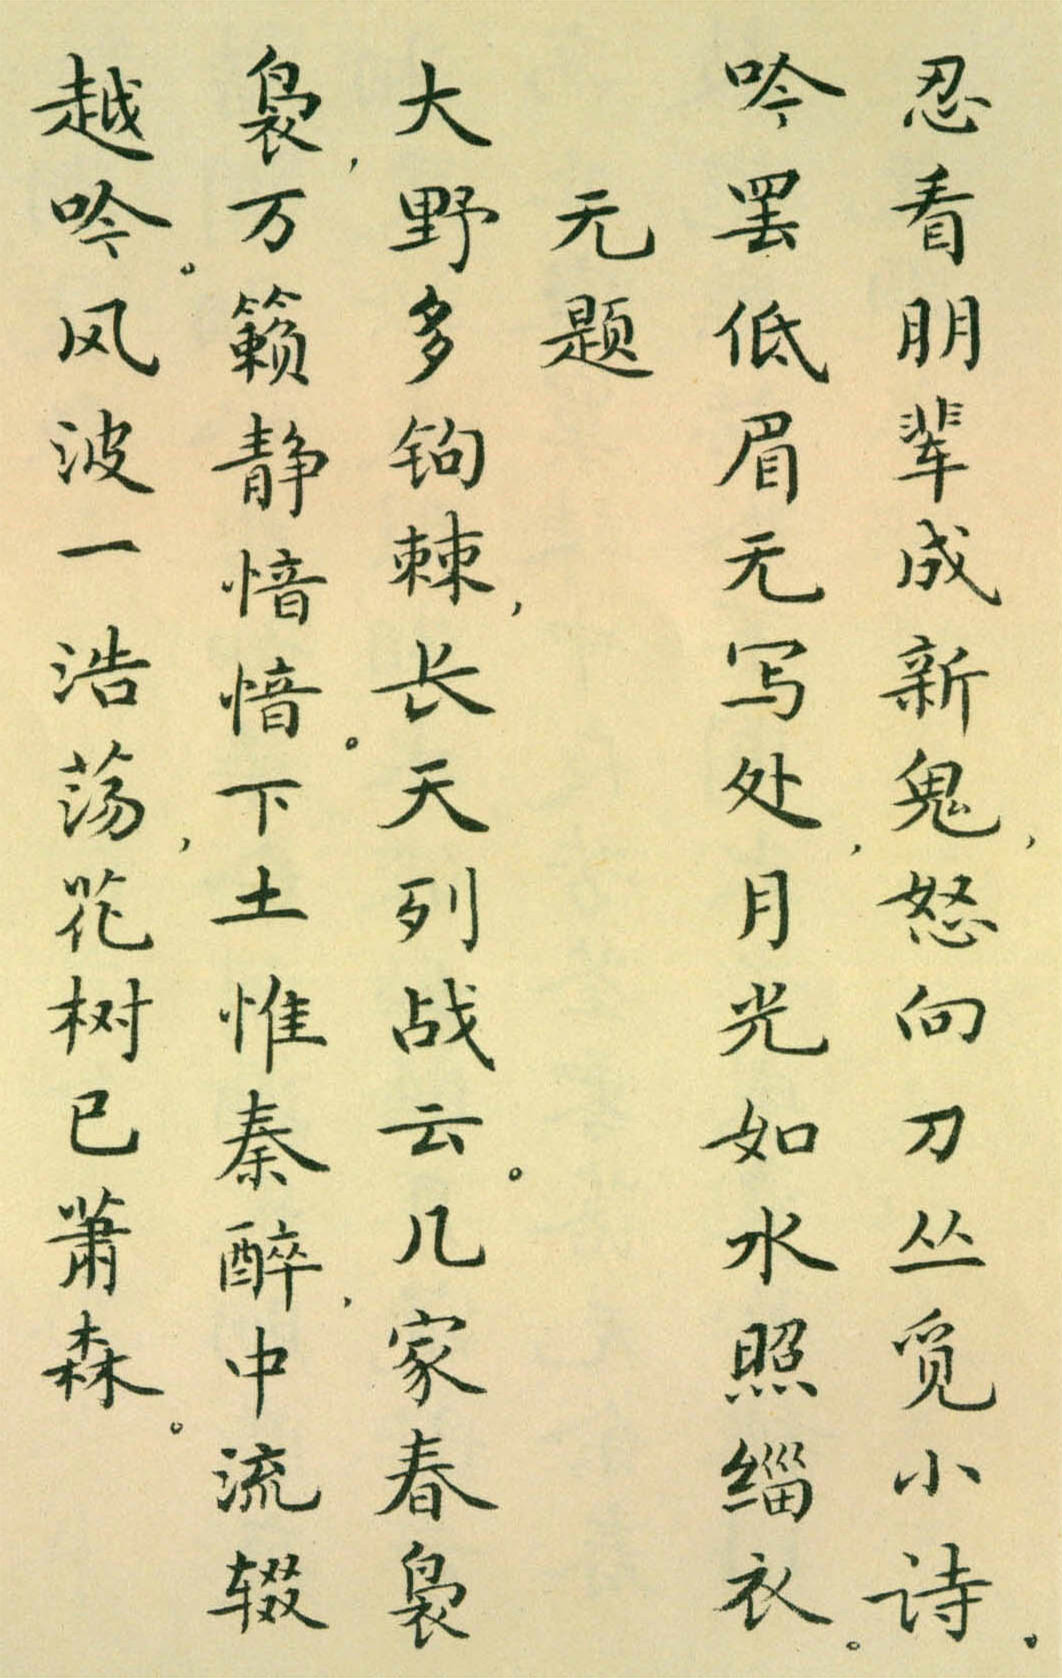 忍看朋辈成新鬼，怒向刀丛觅小诗。
吟罢低眉无写处，月光如水照缁衣。
无题
大野多钩棘，长天列战云。几家春袅
袅，万籁静愔愔。下土惟秦醉，中流辍
越吟。风波一浩荡，花树已萧森。